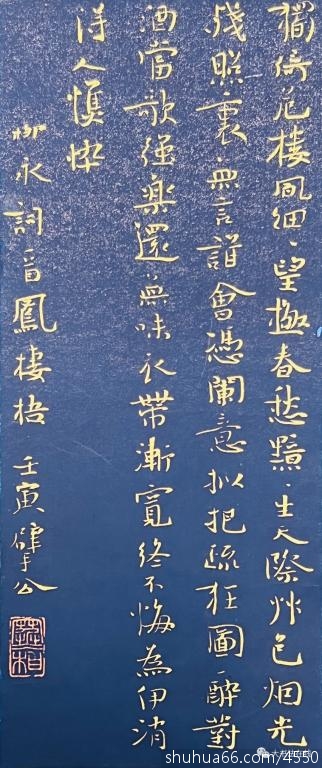 獨倚危樓風細〻望極春愁黯〻生天際艸色烟光
殘照裏無言誰會憑闌意拟把疏狂圖一醉對
酒當歌強樂還無味衣帶漸寬終不悔為伊消
得人憔悴
柳永詞一首鳳棲梧 壬寅
shuhua66.com/4550